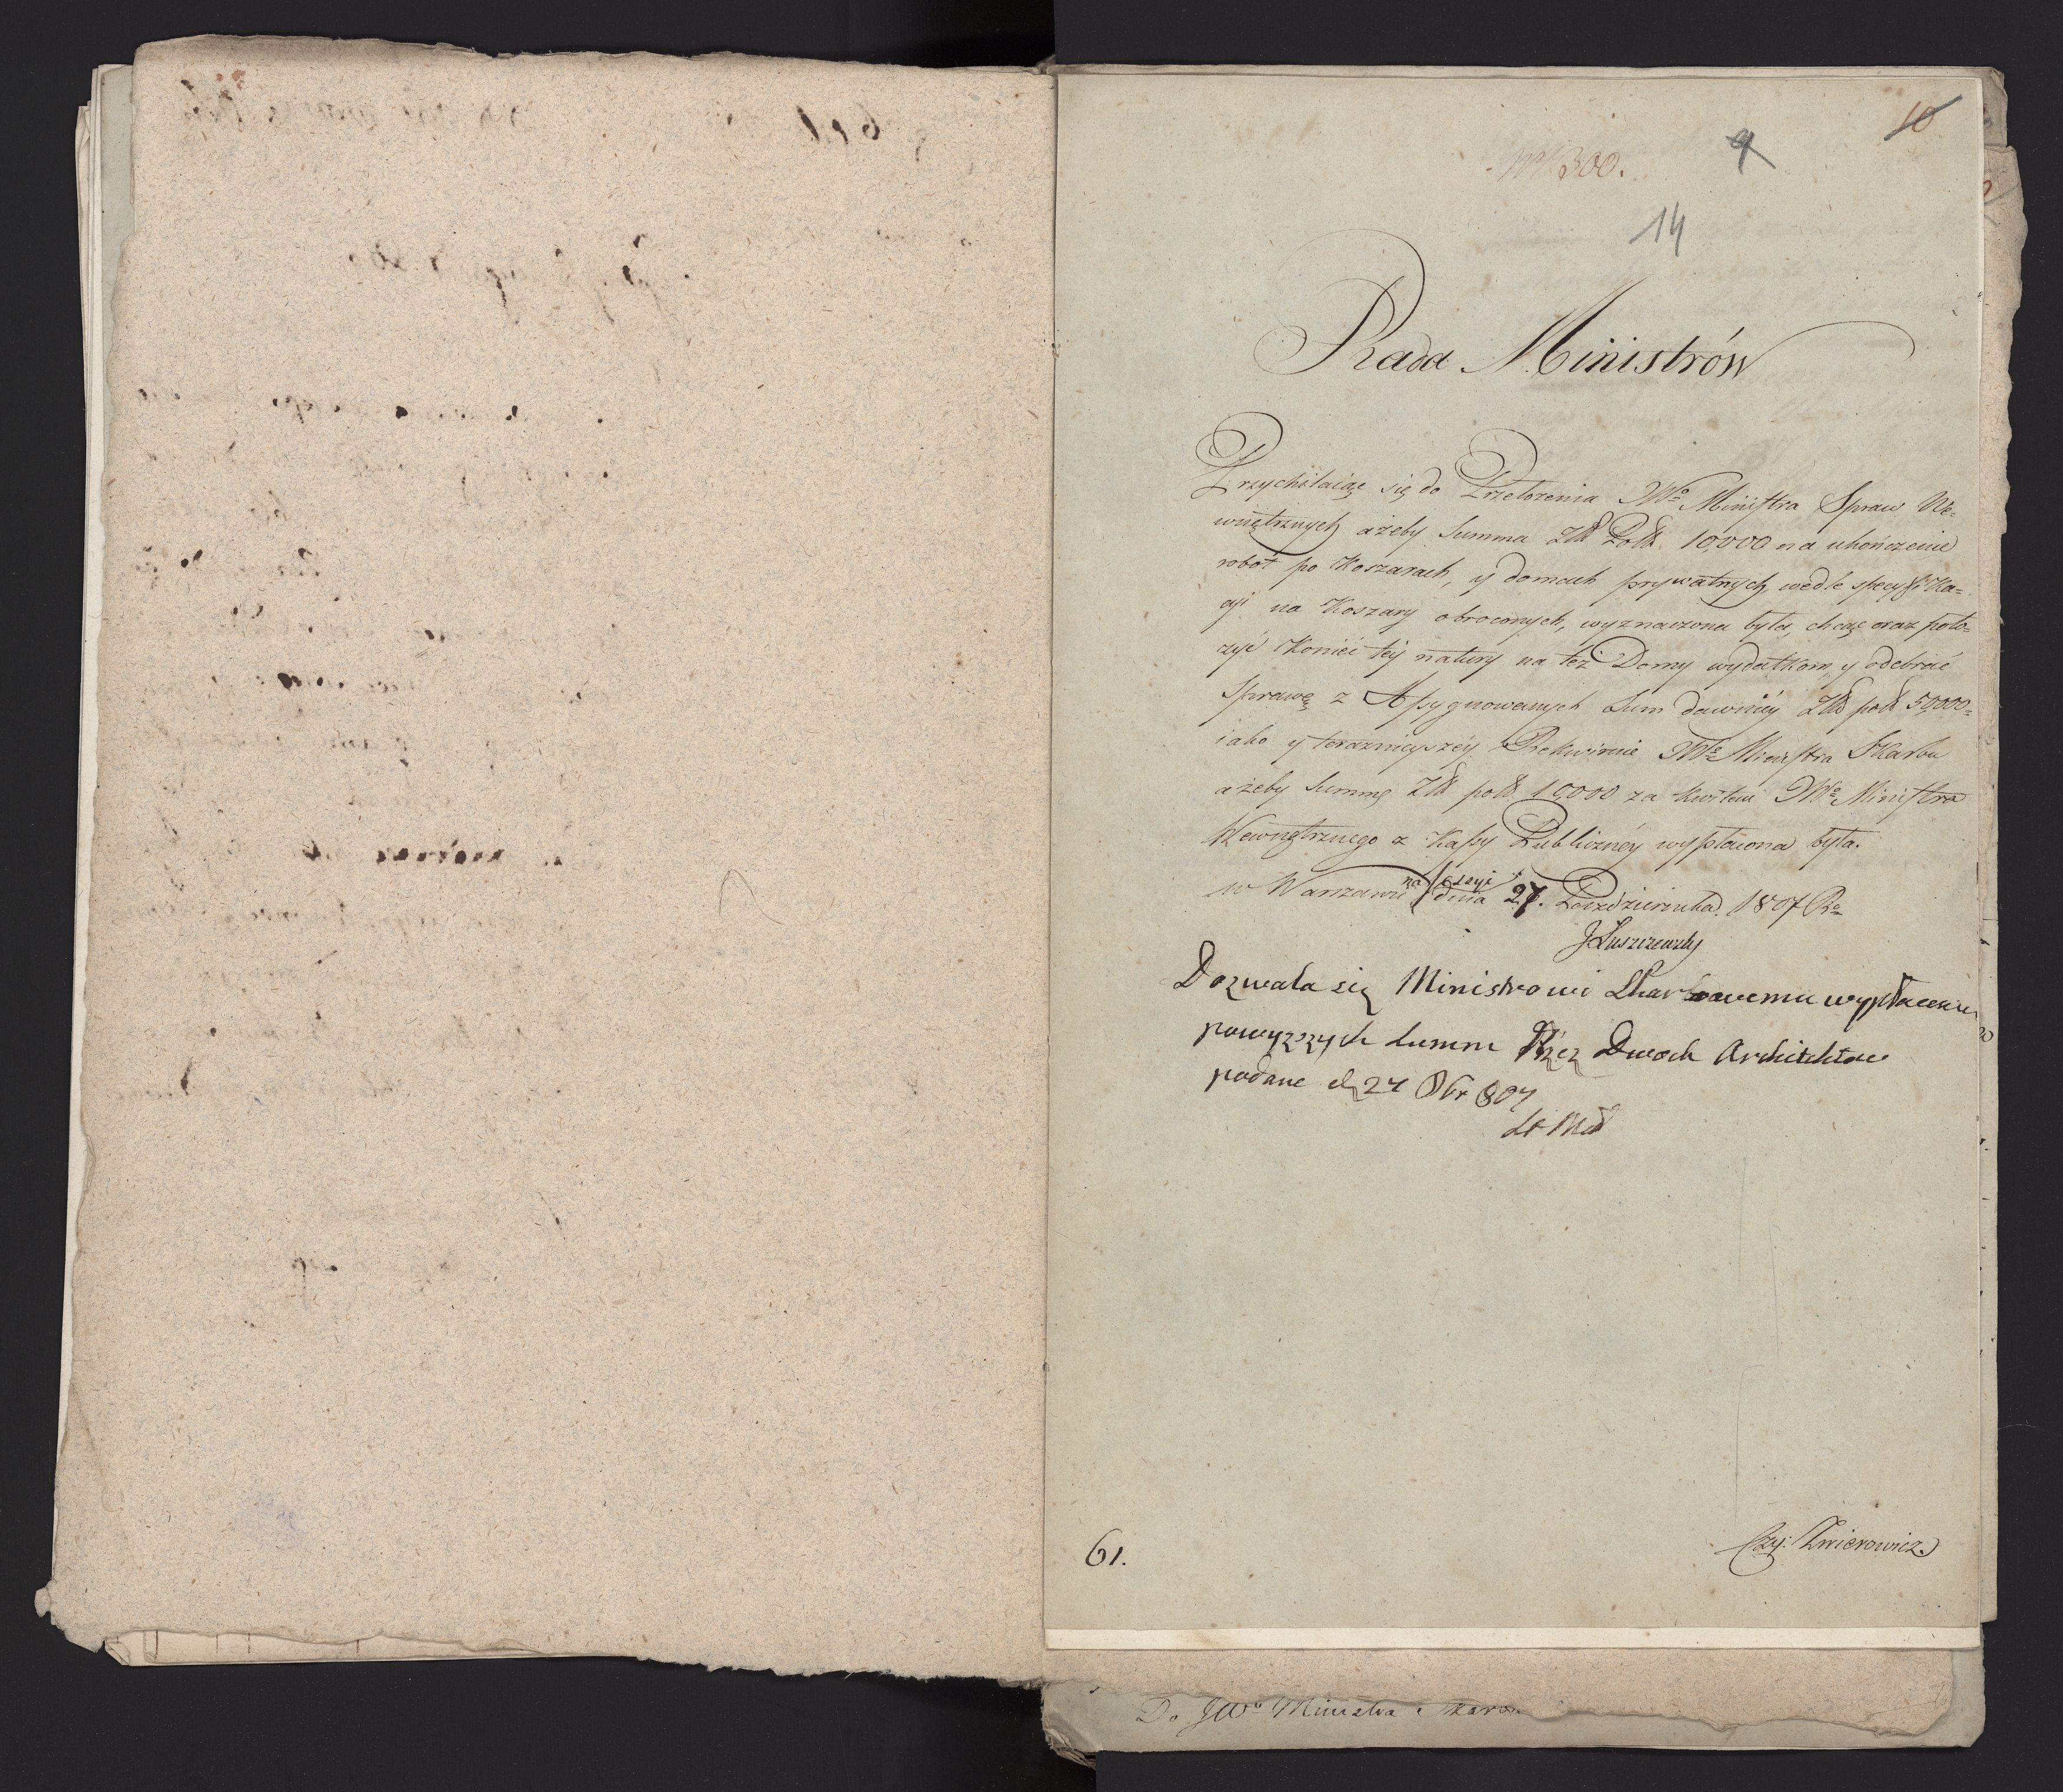 10
9
№ 300.
14
Rada Ministrów
Przychilaiąc się do Przełożenia JWo Ministra Spraw We=
wnętrznych ażeby Summa Złł Polł 10,000 na ukończenie
robót po Koszarach, y domach prywatnych, wedle specyfika=
cyi na Koszary obroconych, wyznaczona była, chcąc oraz poło=
żyć Konieć téy natury na też Domy wydatkom, y odebrać
Sprawę z Assygnowanych Sum dawniéy Złł polł 50,000=
iako y teraznieyszéy Rekwiruie JWo Ministra Skarbu
ażeby Summę Złł polł 10,000 za kwitem JWo Ministra
Wewnętrznego z Kassy Publicznéy wypłacona była.
w Warszawie na Sessyi dnia 27. Października 1807 Ro
J Łuszczewsky
Dozwala się Ministrowi Skarbowemu wypłacenie
powyzszych Summ Przez Dwoch Architektow
podane d 27 8br 807
St Mał
61.
Do JWo Ministra Skarbu